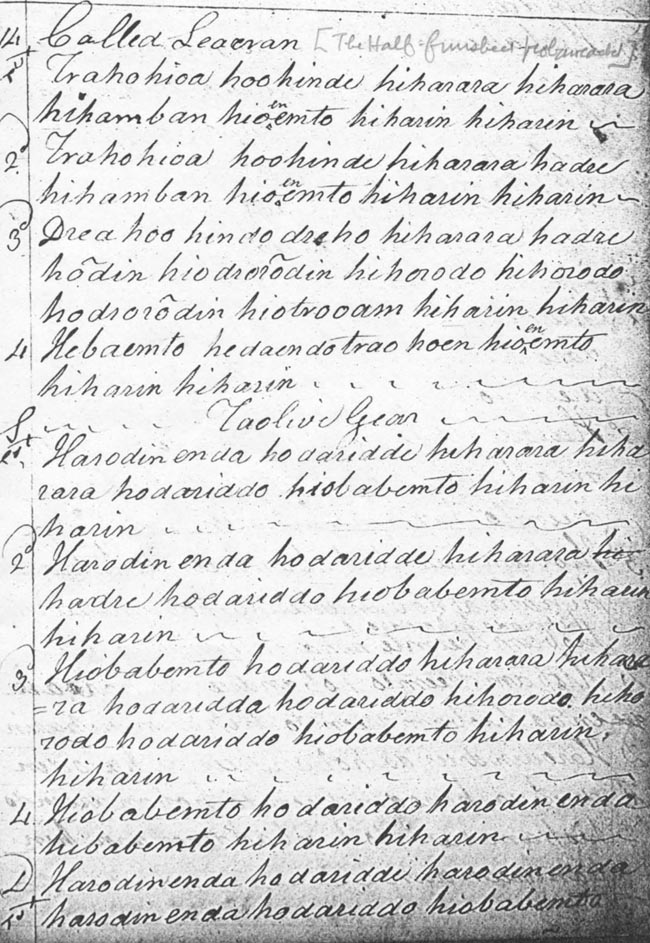 14 Called Learvan [The Half-finished
1st Trahohioa hoohinde hiharara hiharara
hihamban hioenemto hiharin hiharin
2d Trahohioa hoohinde hiharara hadre
hihamban hioenemto hiharin hiharin
3d Drea hoo hindo dreho hiharara hadre
hōdin hiodrorōdin hihorodo hihorodo
hodrorōdin hiotrooam hiharin hiharin
4 Hebaemto hedaendotrao hoen hioenemto
hiharin hiharin
Taolive Gear
1st Harodin enda hodaridde hiharara hiha
rara hodariddo hiobabemto hiharin hi
harin
2d Harodin enda hodaridde hiharara hi
hadre hodariddo hiobabemto hiharin
hiharin
3d Hiobabemto hodariddo hiharara hihara
=ra hodaridda hodariddo hihorodo hiho
rodo hodariddo hiobabemto hiharin
hiharin
4 Hiobabemto hodariddo harodin enda
hibabemto hiharin hiharin
D Harodin enda hodaridde harodin enda
1st harodin enda hodariddo hiobabemto